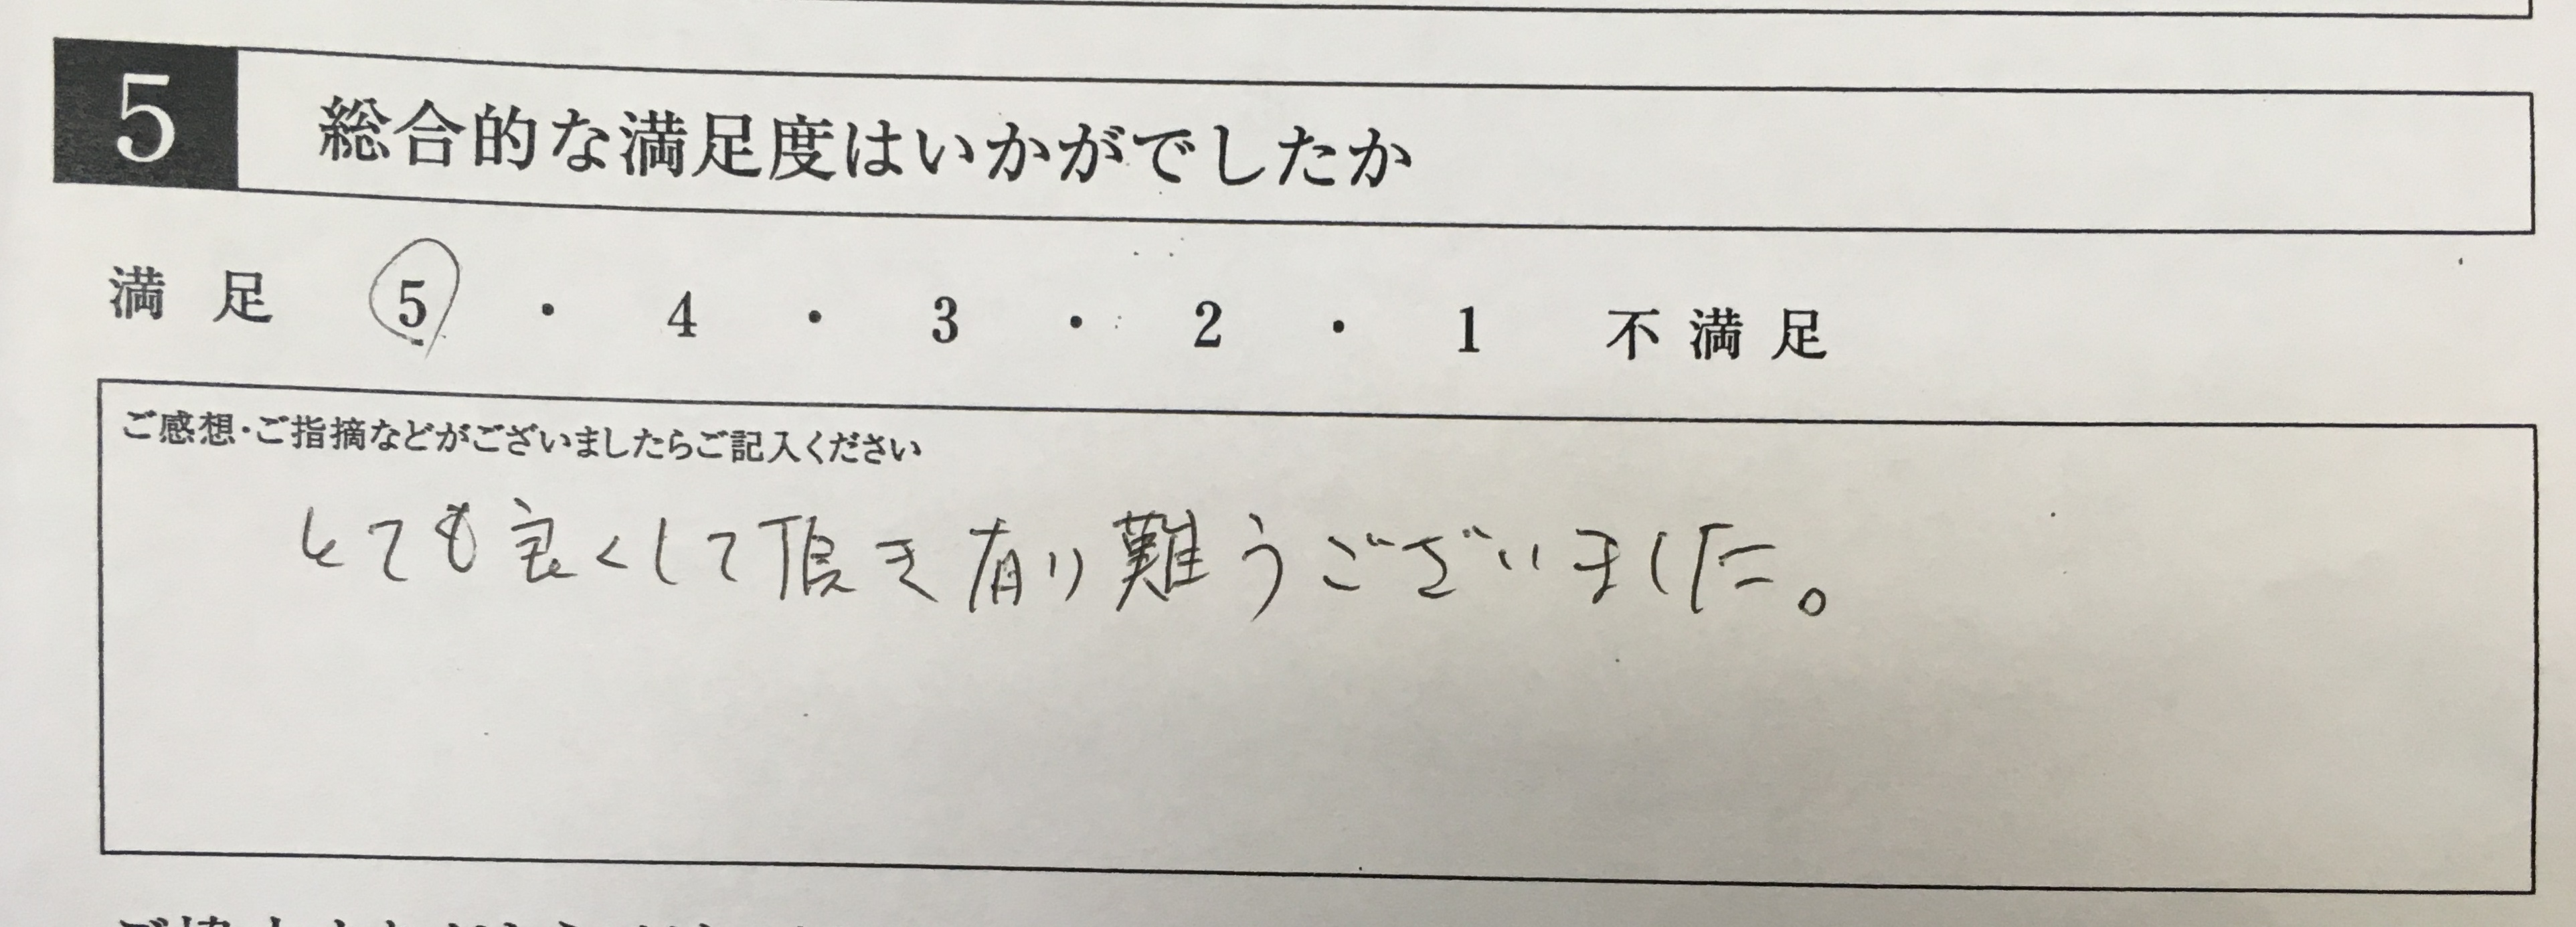 5 総合的な満足度はいかがでしたか
満足 5 ・ 4 ・ 3 ・ 2 ・ 1 不満足
ご感想・ご指摘などがございましたらご記入ください
とても良くして頂き有り難うございました。